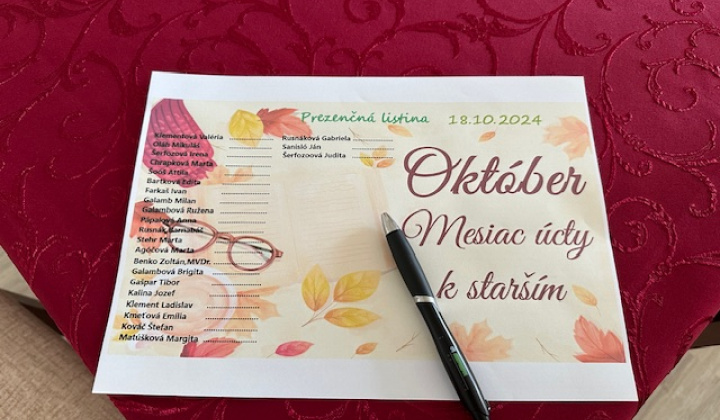 Prezenčná listina 18.10.2024
Klementová Valéria
Oláh Mikuláš
Šerfözöová Irena
Chrapková Marta
Šoóš Attila
Bartková Edita
Farkaš Ivan
Galamb Milan
Galambová Ružena
Pápaiová Anna
Rusnák Barnabáš
Stehr Marta
Agócsová Marta
Benko Zoltán,MVDr.
Galambová Brigita
Gašpar Tibor
Kalina Jozef
Klement Ladislav
Kmeťová Emília
Kováč Štefan
Matúšková Margita
Rusnáková Gabriela
Sanisló Ján
Šerfozoová Judita
Október
Mesiac úcty
k starším